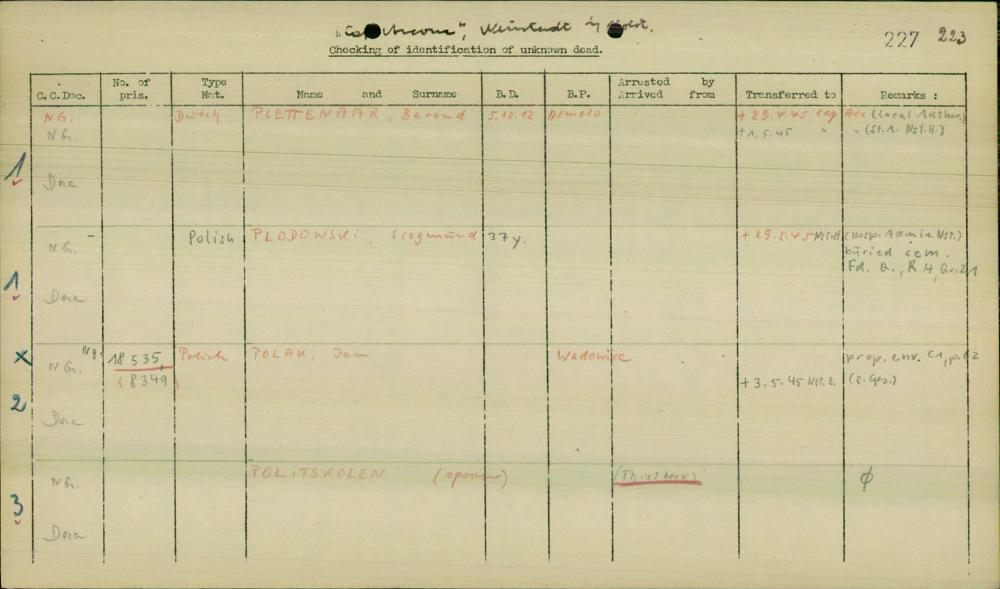 "Cap Arcona", Neustadt i/ Holst.
227 223
Checking of identification of unknown dead.
C.C.Doc. No. of pris. Type Nat. Name and Surname B.D. B.P. Arrested by Arrived from Transferred to Remarks :
NG. Dutch PLETTENAAR, Berend 5.12.12 Almelo + 29.4.45 Cap Arc (Local Author.)
NG. + 1.5.45 " " (St.A. Nst.H.)
1
Dora
NG. - Polish PLODOWSKI Siegmund 37 y. + 29.5.45 Nst.H (Hosp. Admin. Nst.)
buried cem.
Fd. Q., R 4, Gr. 21
1
Dora
x NG. Ng. 18 535, Polish POLAK, Jan Wadowice prop. env. C1, p. 62
(8349) + 3.5.45 Nst. H.
2
Dora
NG. POLITSKOLEN (Thielbeck) ϕ
3
Dora